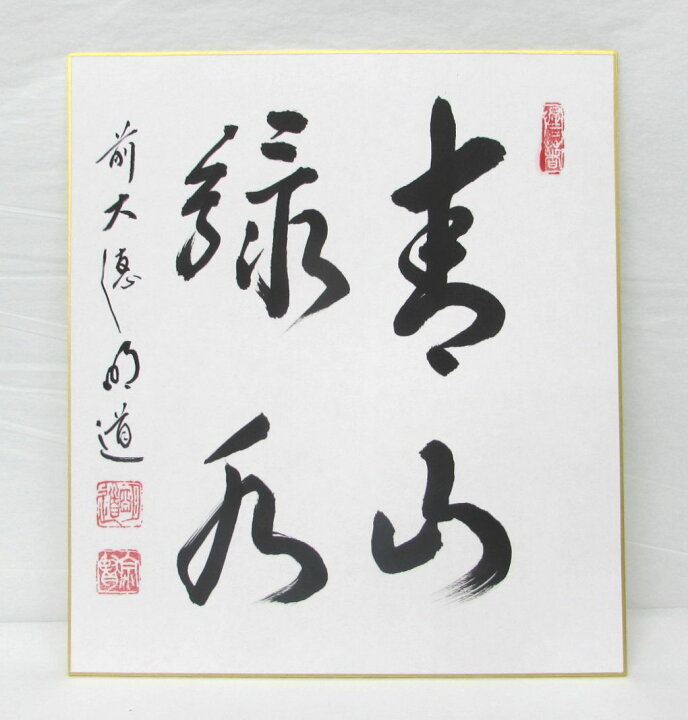 青山
緑水
前大徳明道
明道